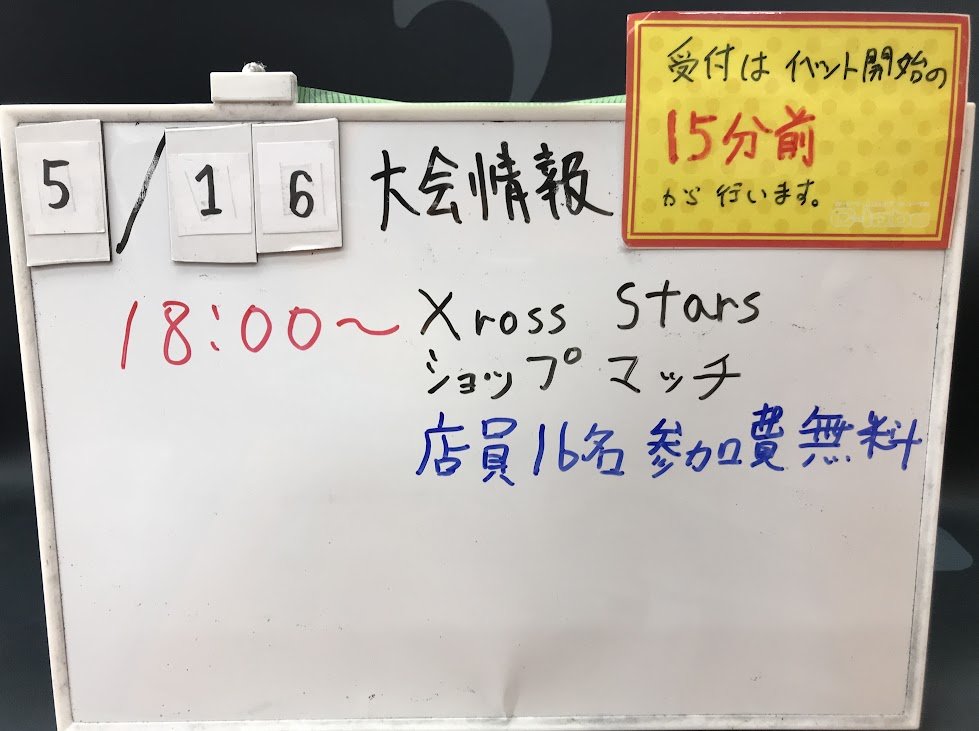 受付は イベント開始の
15分前
から 行います。
5/16 大会情報
18:00〜 Xross Stars
ショップ マッチ
店員16名 参加費無料